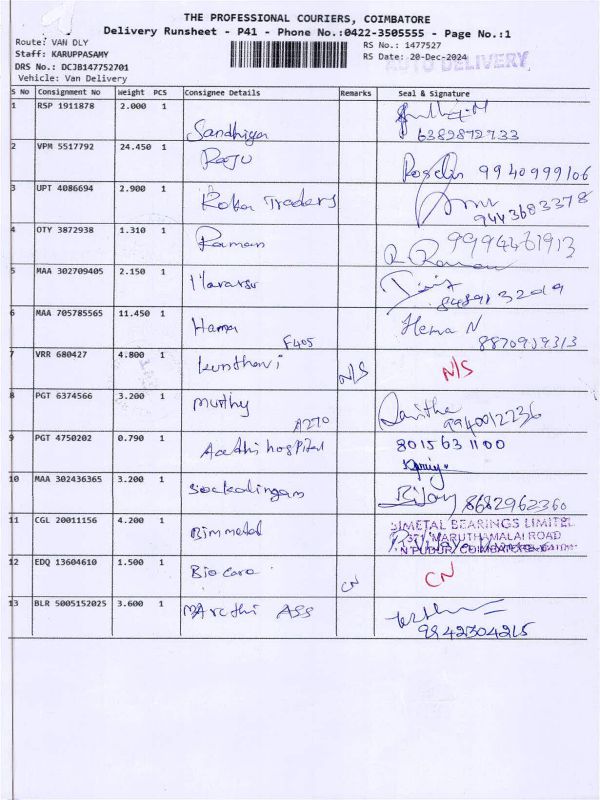 THE PROFESSIONAL COURIERS, COIMBATORE
Delivery Runsheet - P41 - Phone No.:0422-3505555 - Page No.:1
Route: VAN DLY
Staff: KARUPPASAMY
DRS No.: DCJB147752701
Vehicle: Van Delivery
RS No.: 1477527
RS Date: 20-Dec-2024
AUTO DELIVERY
S No Consignment No Weight PCS Consignee Details Remarks Seal & Signature
1 RSP 1911878 2.000 1 Sandhiya
2 VPM 5517792 24.450 1 Raju 9940999106
3 UPT 4086694 2.900 1 Traders 9443683378
4 OTY 3872938 1.310 1 Raman R. Raman
5 MAA 302709405 2.150 1
6 MAA 705785565 11.450 1 Hema Hema N
F405 8870959313
7 VRR 680427 4.800 1 N/S N/S
8 PGT 6374566 3.200 1 Murthy
A270 9940012236
9 PGT 4750202 0.790 1 hospital 8015631100
10 MAA 302436365 3.200 1 8682962360
11 CGL 20011156 4.200 1 Bimmetal
BIMETAL BEARINGS LIMITED
371, MARUTHAMALAI ROAD
12 EDQ 13604610 1.500 1 Bio care CN CN
13 BLR 5005152025 3.600 1 Maruthi Ass
9942304215